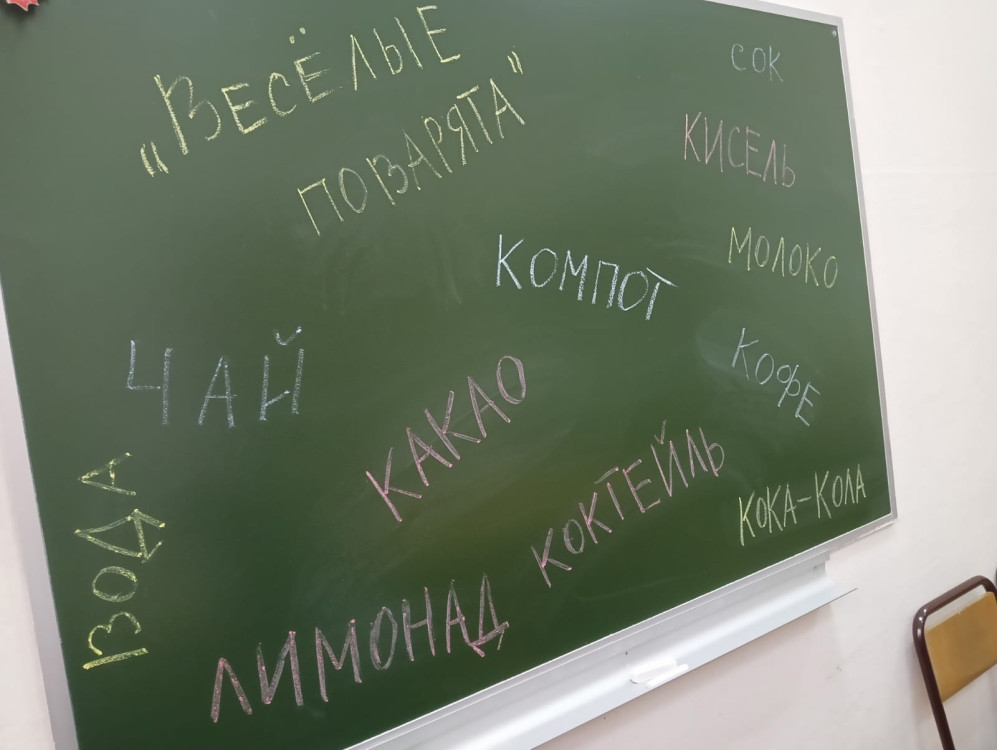 „ВЕСЁЛЫЕ
ПОВАРЯТА"
СОК
КИСЕЛЬ
МОЛОКО
КОМПОТ
КОФЕ
ЧАЙ
КАКАО
КОКТЕЙЛЬ
КОКА-КОЛА
ВОДА
ЛИМОНАД